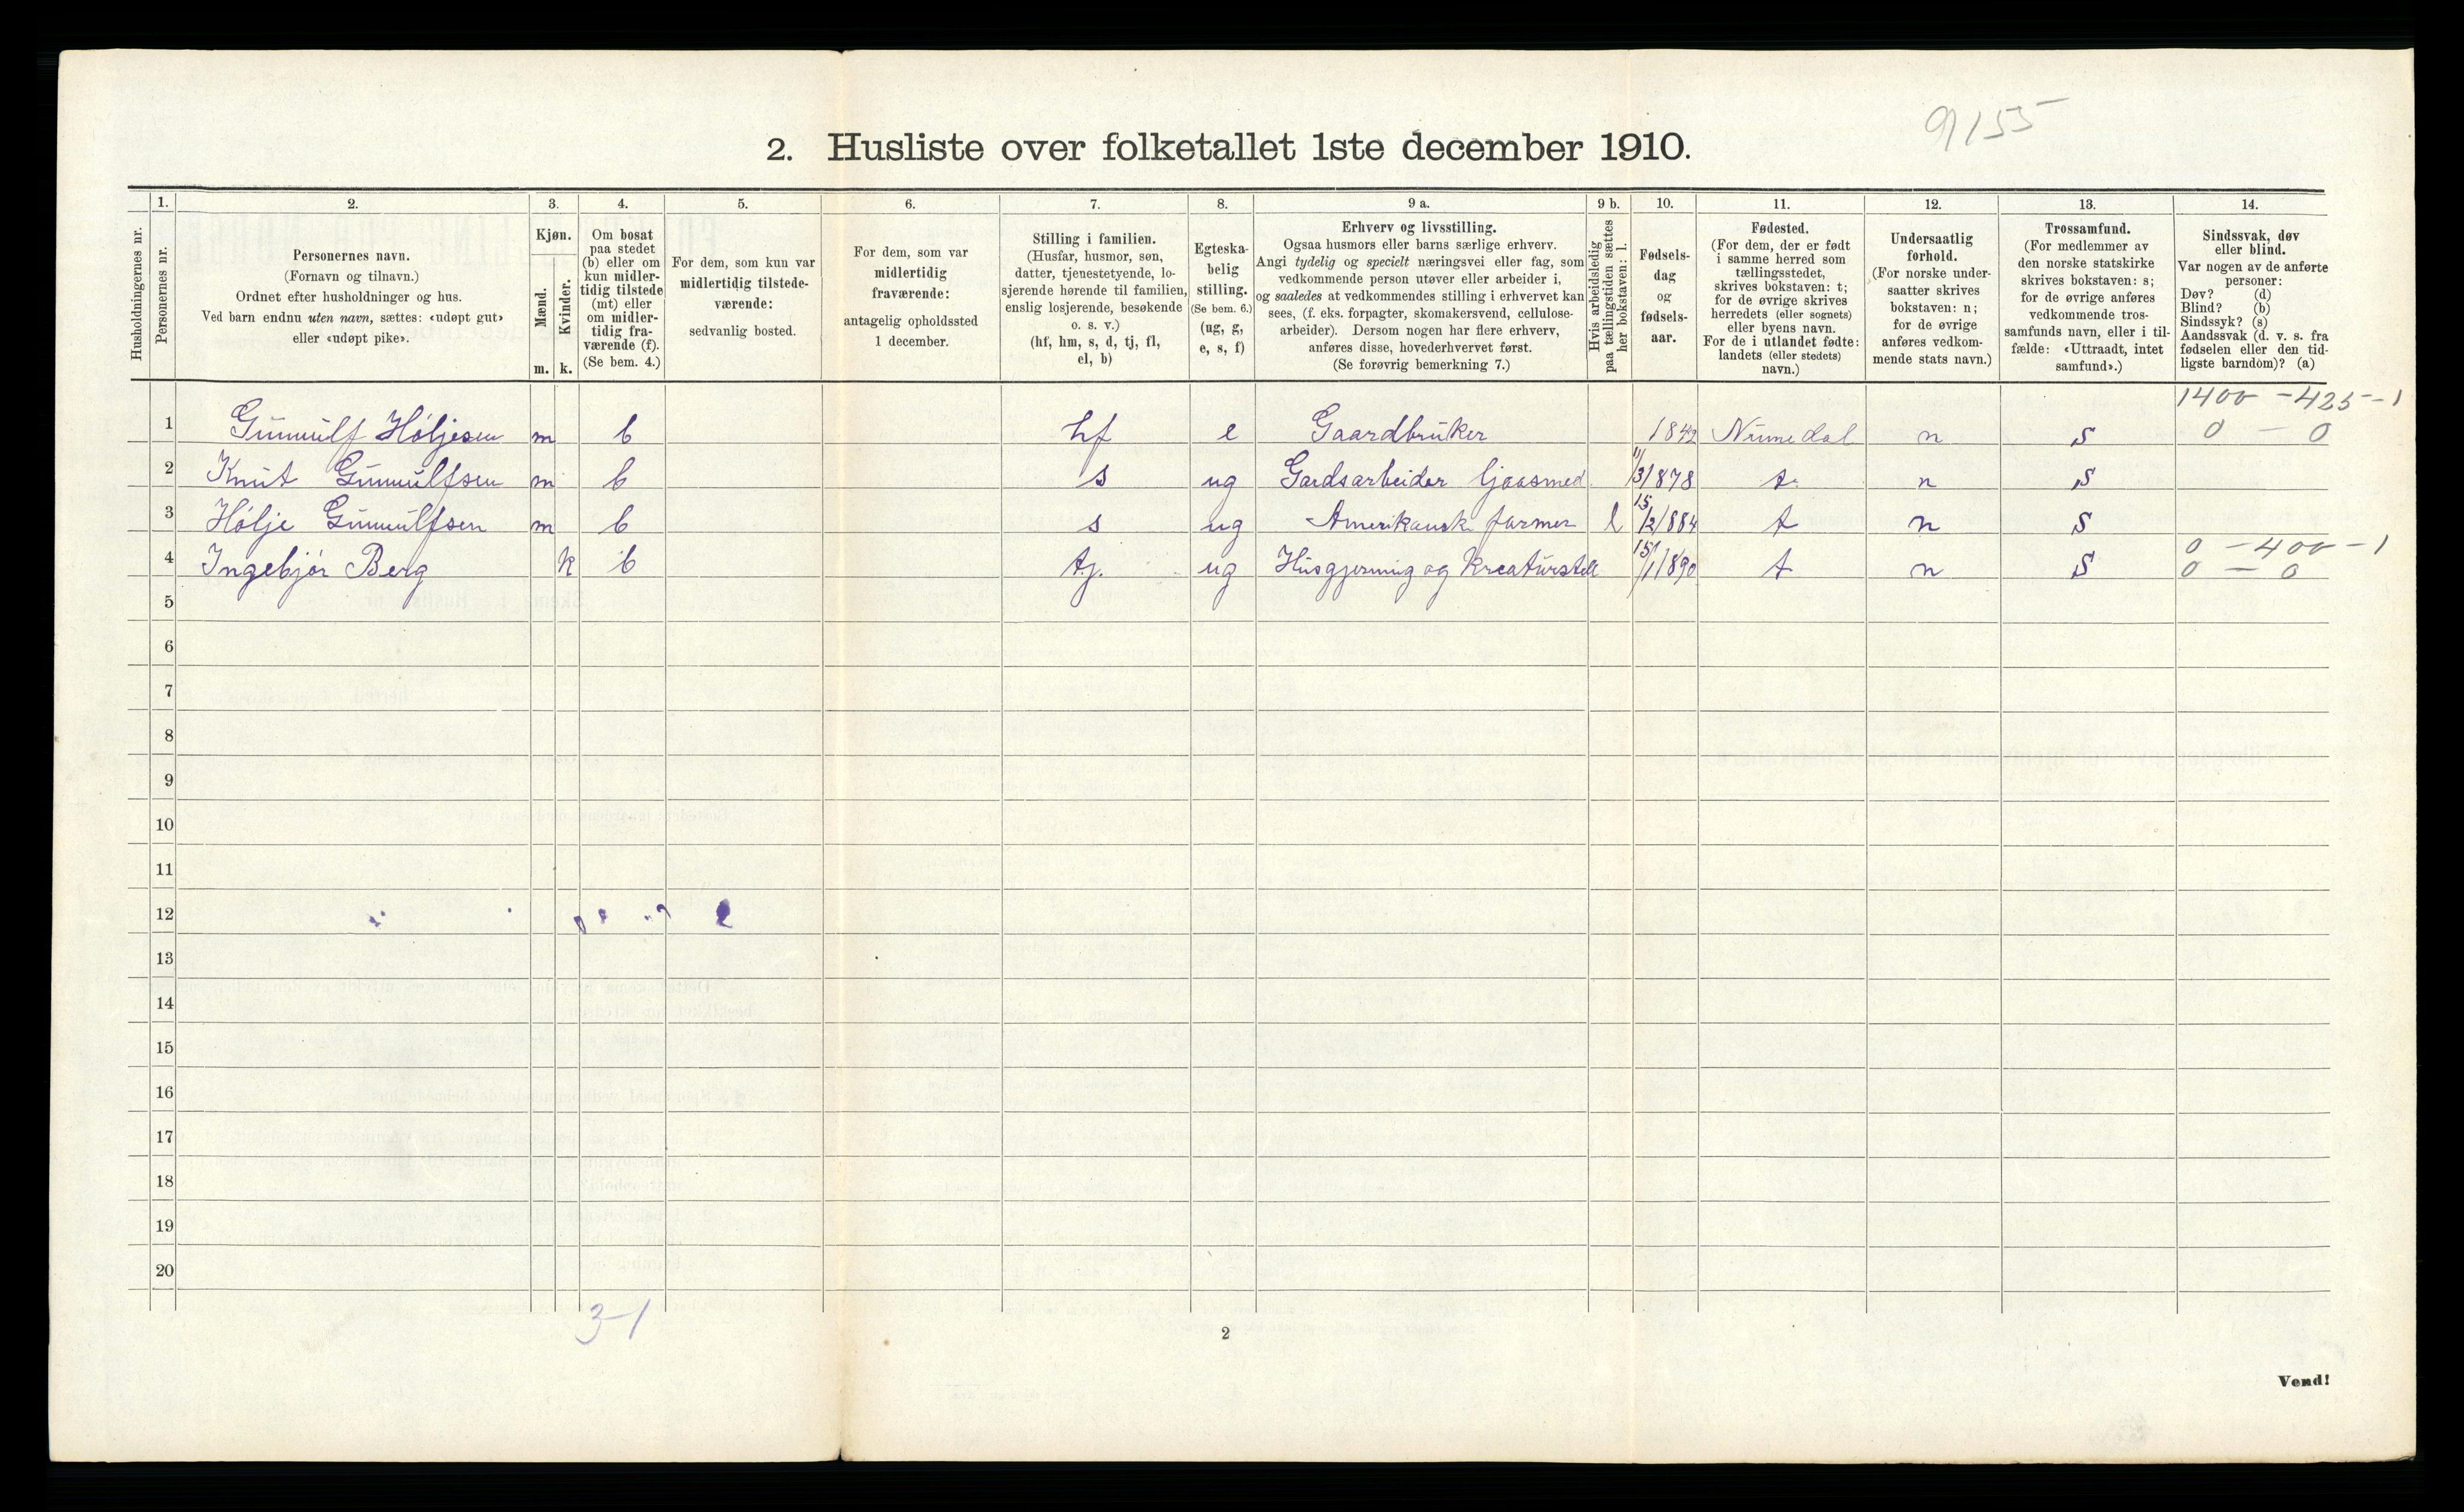 9155
2. Husliste over folketallet 1ste december 1910.
Husholdningernes nr.
1.
Personernes nr.
2.
Personernes navn.
(Fornavn og tilnavn.)
Ordnet efter husholdninger og hus.
Ved barn endnu uten navn, sættes: «udøpt gut»
eller «udøpt pike».
3.
Kjøn.
Mænd.
Kvinder.
m. k.
4.
Om bosat
paa stedet
(b) eller om
kun midler-
tidig tilstede
(mt) eller
om midler-
tidig fra-
værende (f).
(Se bem. 4.)
5.
For dem, som kun var
midlertidig tilstede-
værende:
sedvanlig bosted.
6.
For dem, som var
midlertidig
fraværende:
antagelig opholdssted
1 december.
7.
Stilling i familien.
(Husfar, husmor, søn,
datter, tjenestetyende, lo-
sjerende hørende til familien,
enslig losjerende, besøkende
o. s. v.)
(hf, hm, s, d, tj, fl,
el, b)
8.
Egteska-
belig
stilling.
(Se bem. 6.)
(ug, g,
e, s, f)
9 a.
Erhverv og livsstilling.
Ogsaa husmors eller barns særlige erhverv.
Angi tydelig og specielt næringsvei eller fag, som
vedkommende person utøver eller arbeider i,
og saaledes at vedkommendes stilling i erhvervet kan
sees, (f. eks. forpagter, skomakersvend, cellulose-
arbeider). Dersom nogen har flere erhverv,
anføres disse, hovederhvervet først.
(Se forøvrig bemerkning 7.)
9 b.
Hvis arbeidsledig
paa tællingstiden sættes
her bokstaven: l.
10.
Fødsels-
dag
og
fødsels-
aar.
11.
Fødested.
(For dem, der er født
i samme herred som
tællingsstedet,
skrives bokstaven: t;
for de øvrige skrives
herredets (eller sognets)
eller byens navn.
For de i utlandet fødte:
landets (eller stedets)
navn.)
12.
Undersaatlig
forhold.
(For norske under-
saatter skrives
bokstaven: n;
for de øvrige
anføres vedkom-
mende stats navn.)
13.
Trossamfund.
(For medlemmer av
den norske statskirke
skrives bokstaven: s;
for de øvrige anføres
vedkommende tros-
samfunds navn, eller i til-
fælde: «Uttraadt, intet
samfund».)
14.
Sindssvak, døv
eller blind.
Var nogen av de anførte
personer:
Døv? (d)
Blind? (b)
Sindssyk? (s)
Aandssvak (d. v. s. fra
fødselen eller den tid-
ligste barndom)? (a)
1400 - 425 - 1
1 Gunnulf Høljesen m b hf e Gaardbruker 1842 Numedal n s 0 - 0
2 Knut Gunnulfsen m b s ug Gardsarbeider 11/3 1878 t n s
3 Hølje Gunnulfsen m b s ug Amerikansk farmer l 15/2 1884 t n s
0 - 400 - 1
4 Ingebjør Berg k b tj. ug Husgjerning og Kreaturstell 15/1 1890 t n s 0 - 0
5
6
7
8
9
10
11
12
13
14
15
16
17
18
19
20
3-1
2
Vend!